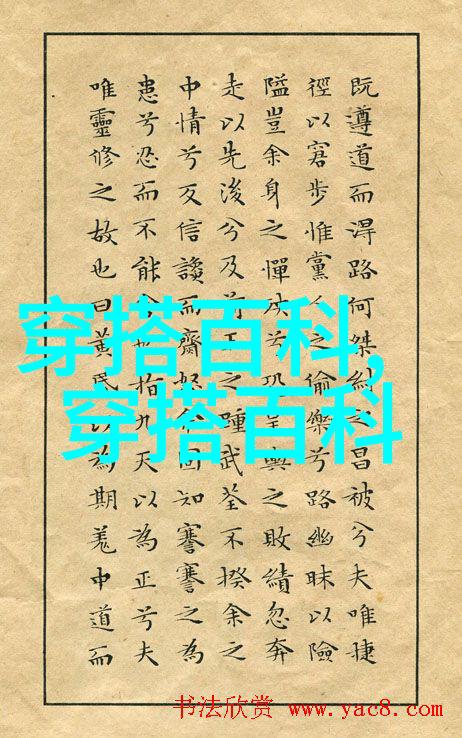 既遵道而得路何桀紂之昌被兮夫唯捷
徑以窘步惟黨人之偷樂兮路幽昧以險
隘豈余身之憚殃兮恐皇輿之敗績忽奔
走以先後兮及前王之踵武荃不揆余之
中情兮反信讒而齋怒余固知謇謇之為
患兮忍而不能舍也指九天以為正兮夫
唯靈修之故也曰黃昏以為期羌中道而
穿搭百科,
穿搭百科
书法欣赏 www.yac8.com